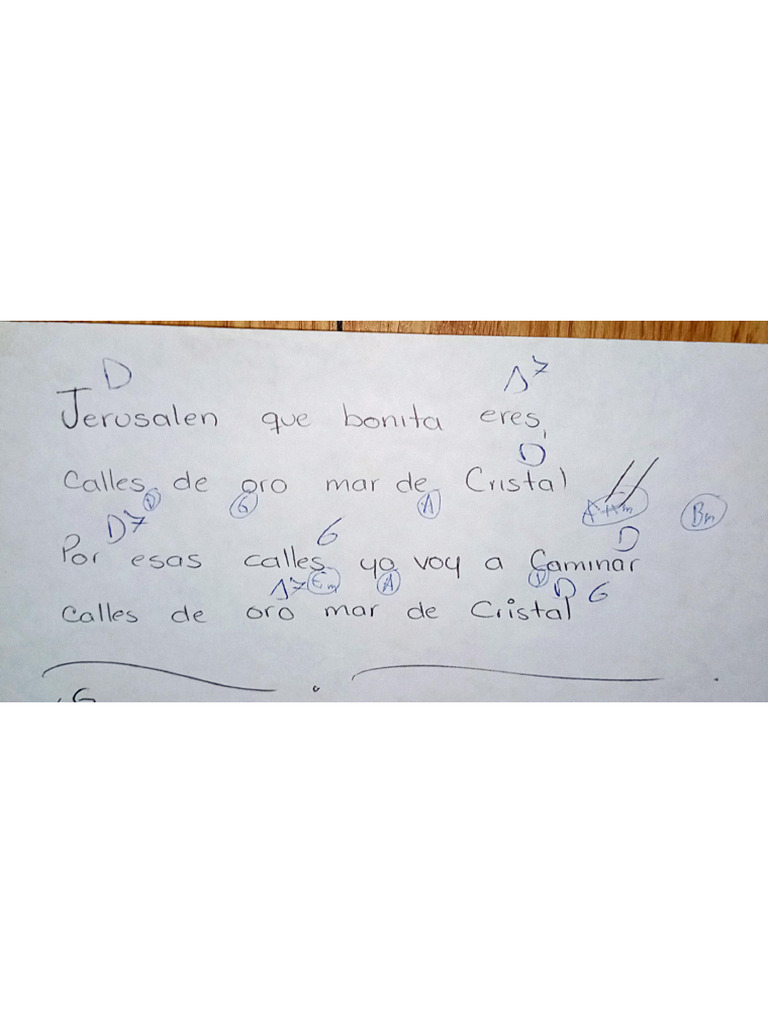 D A7
Jerusalen que bonita eres,
D
Calles de oro mar de Cristal //
D G A Bm
D7 G D
Por esas calles yo voy a Caminar
A7 Em A D D G
calles de oro mar de Cristal
G